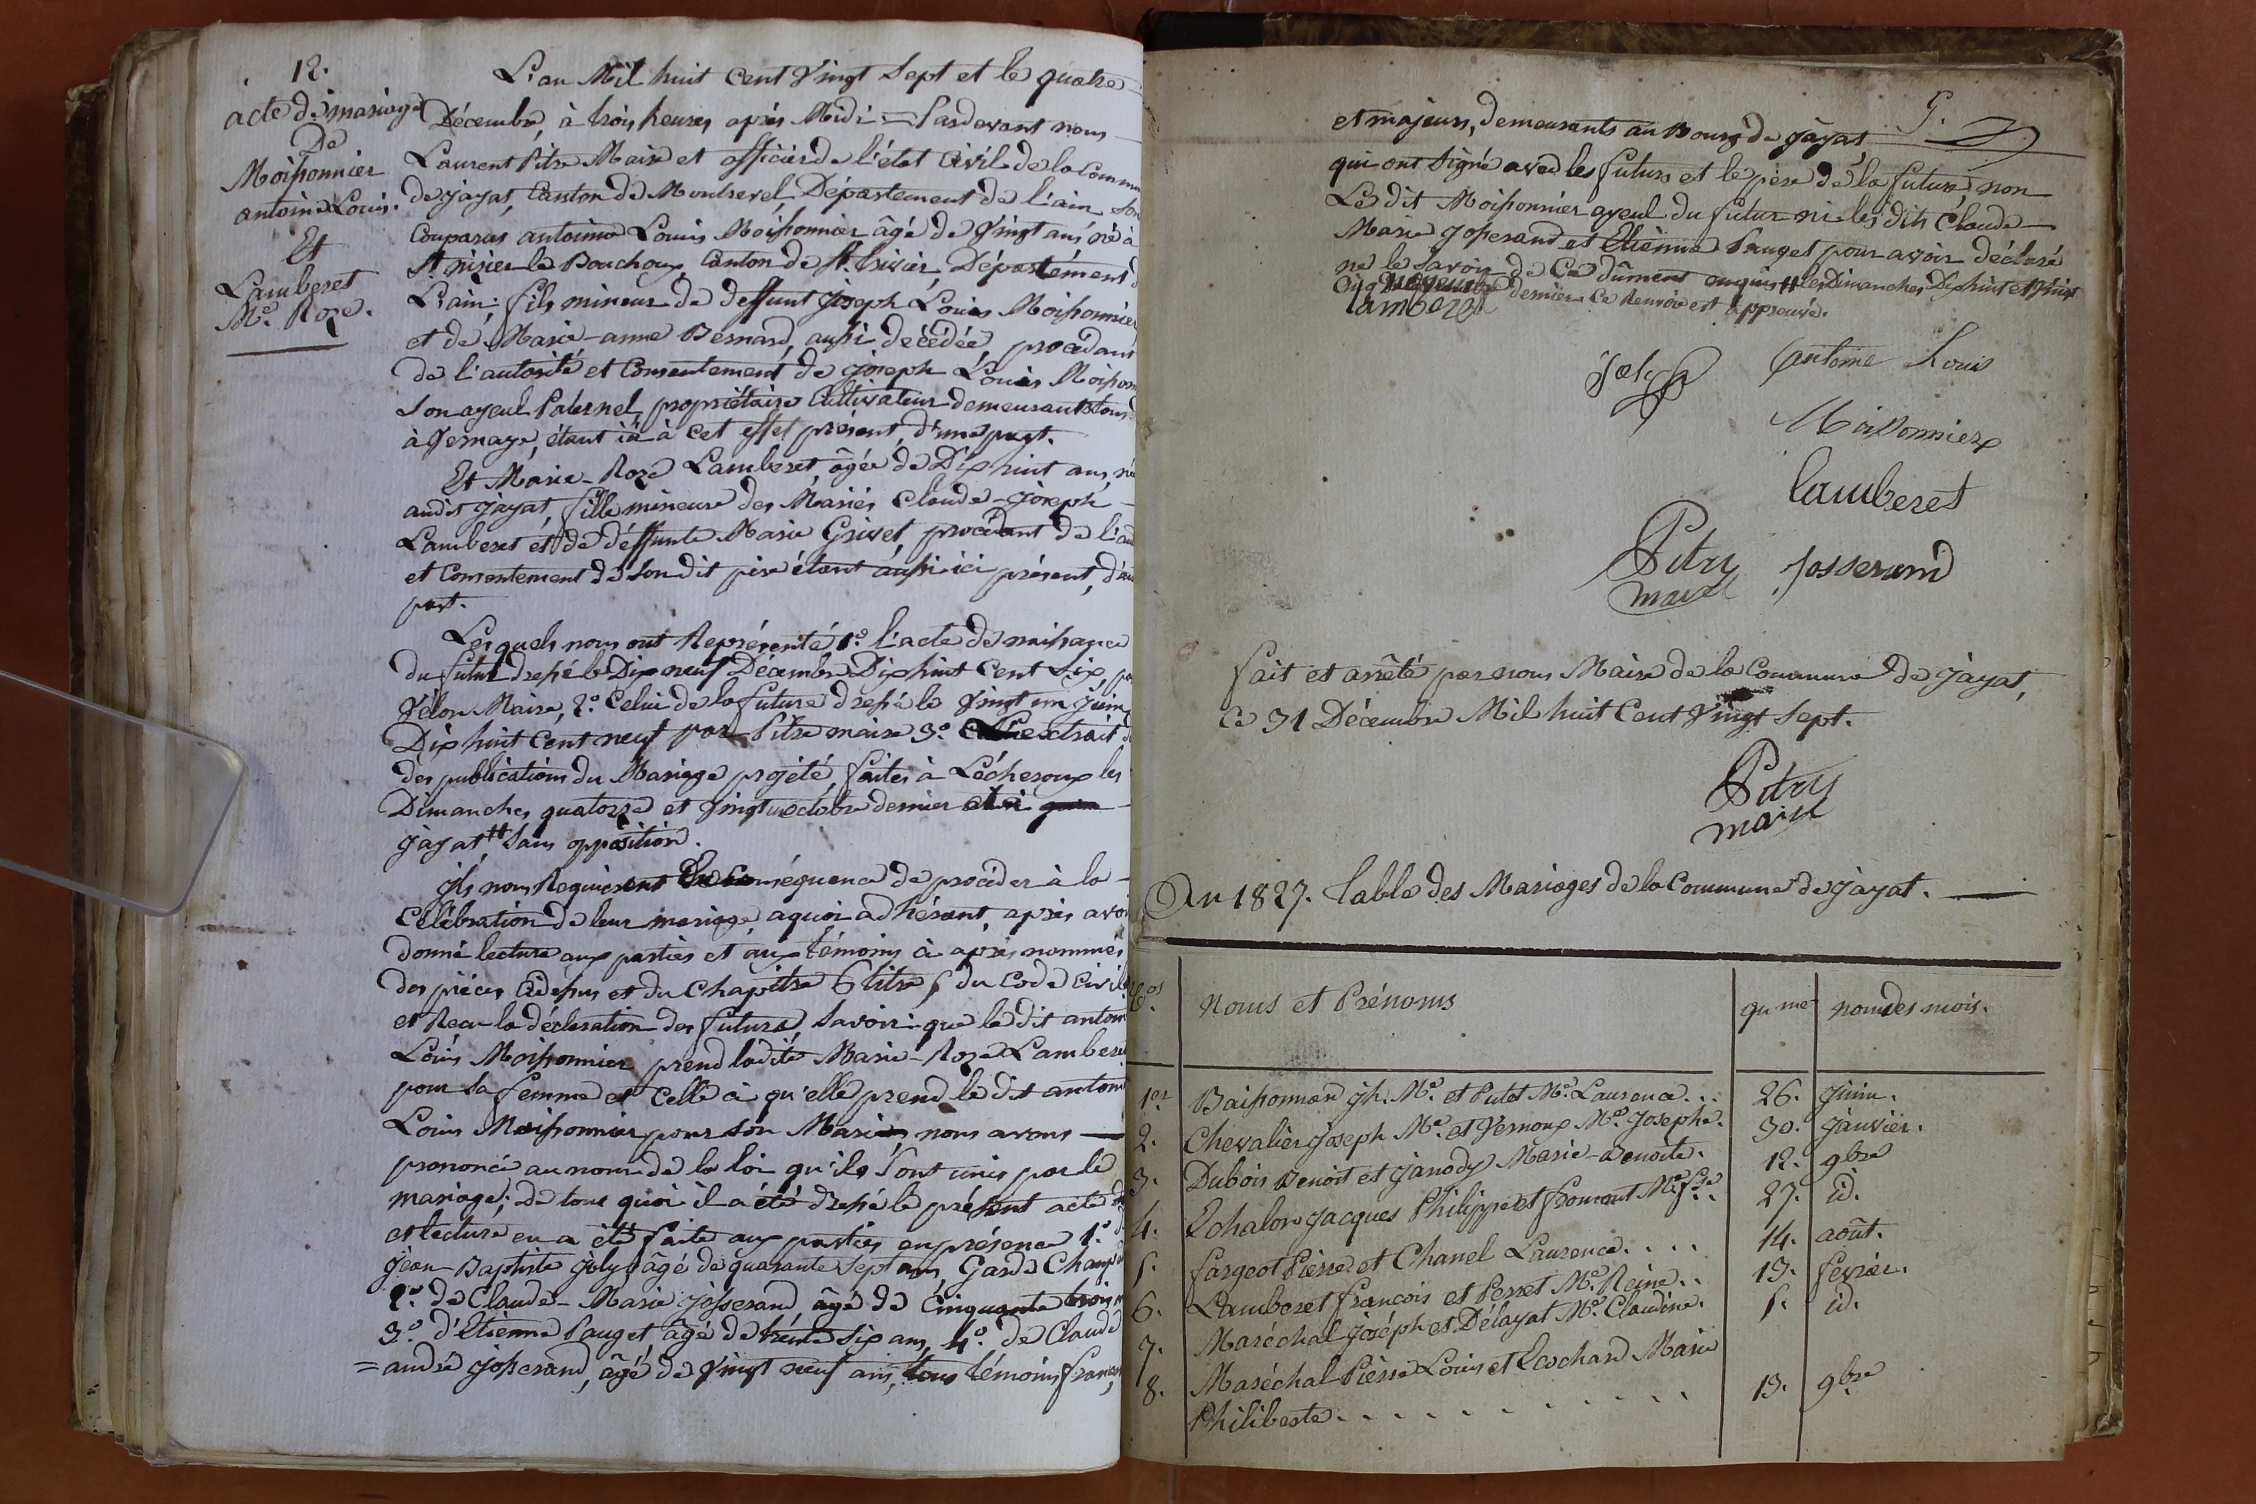 12.
acte de mariage
De
Moissonnier
antoine Louis.
Et
Lamberet
Mie. Roze.
L'an Mil huit Cent Vingt Sept et le quatre
Décembre, à trois heures après Midi = Pardevant nous
Laurent Pitre Maire et officier de l'état Civil de la Commu
de jayat, Canton de Montrevel Département de l'ain, son
Comparus antoine Louis Moissonnier âgé de Vingt ans, né à
St. nizier le Bouchoux, Canton de St. trivier, Département d
L'ain; fils mineur de deffunt joseph Louis Moissonnier
et de Marie-anne Bernard, aussi décédée, procédant
de l'autorité et Consentement de joseph Louis Moisson
Son ayeul Paternel, propriétaire Cultivateur demeurant tous d
à Jemaye, étant ici à cet effet présent, d'une part.
Et Marie-Roze Lamberet, âgée de Dix huit ans, né
audit jayat, fille mineure des Mariés Claude-joseph
Lamberet et de déffunte Marie Grivet, procédant de l'au
et Consentement de son dit père étant aussi ici présent, d'au
part.
Lesquels nous ont Représenté 1.o l'acte de naissance
du futur dressé le Dix neuf Décembre Dix huit Cent Six, pa
Vélon Maire, 2.o Celui de la future dressé le Vingt un juin
Dix huit Cent neuf par Pitre maire 3.o extrait d
des publications du Mariage projété, faites à Lécheroux les
Dimanches quatorze et Vingt un octobre dernier et ici
jayat # sans opposition.
ils nous Requièrent En Conséquence de procéder à la
Célébration de leur mariage, aquoi adhérant, après avoi
donné lecture aux parties et aux témoins ci après nommés
des pièces cidessus et du Chapitre 6 titre 5 du Code Civil
et Recu la déclaration des futurs, Savoir: que le dit antoin
Louis Moissonnier prend ladite Marie-Roze Lambere
pour sa femme et Celle ci qu'elle prend le dit antoin
Louis Moissonnier pour son Mari, nous avons
prononcé au nom de la loi qu'ils sont unis par le
mariage; de tout quoi il a été dressé le présent acte
et lecture en a été faite aux parties en présence 1.o d
jean-Baptiste joly âgé de quarante sept ans, Garde Champ
2.o de Claude-Marie josserand, âgé de Cinquante trois
3.o d'Etienne Pauget âgé de trente six ans, 4.o de Claude
= andré josserand, âgé de Vingt neuf ans, tous témoins francais,
5.
et majeurs, demeurants au Bourg de jayat
qui ont signé avec les futurs et le père de la future, non
Le dit Moissonnier ayeul du futur ni les dits Claude
Marie josserand et Etienne Pauget pour avoir déclaré
ne le savoir de Ce dûment enquis # les Dimanches Dix huit et Vingt
cinq novembre dernier Ce Renvoi est approuvé.
lamberet
Joly
antoine Louis
Moissonnier
lamberet
Pitre
maire
josserand
fait et arrêté par nous Maire de la Commune de jayat,
Ce 31 Décembre Mil huit Cent Vingt Sept.
Pitre
maire
An 1827. Table des Mariages de la Commune de jayat.
Nos. Noms et Prénoms qume nom des mois.
1er Baissonnard jh. Mie et Putet Mie Laurence... 26. juin.
2. Chevalier joseph Mie et Vernoux Mie josephe. 30. janvier.
3. Dubois Benoit et janody Marie-Benoite. 12. 9bre
4. Echalon jacques Philippe et fromont Mie fse.. 27. id.
5. fargeot Pierre et Chanel Laurence.... 14. août.
6. Lamberet francois et Perret Mie Reine.. 13. fevrier.
7. Maréchal joséph et Délayat Mie Claudine. 5. id.
8. Maréchal Pierre Louis et Cochard Marie
Philiberte............ 13. 9bre